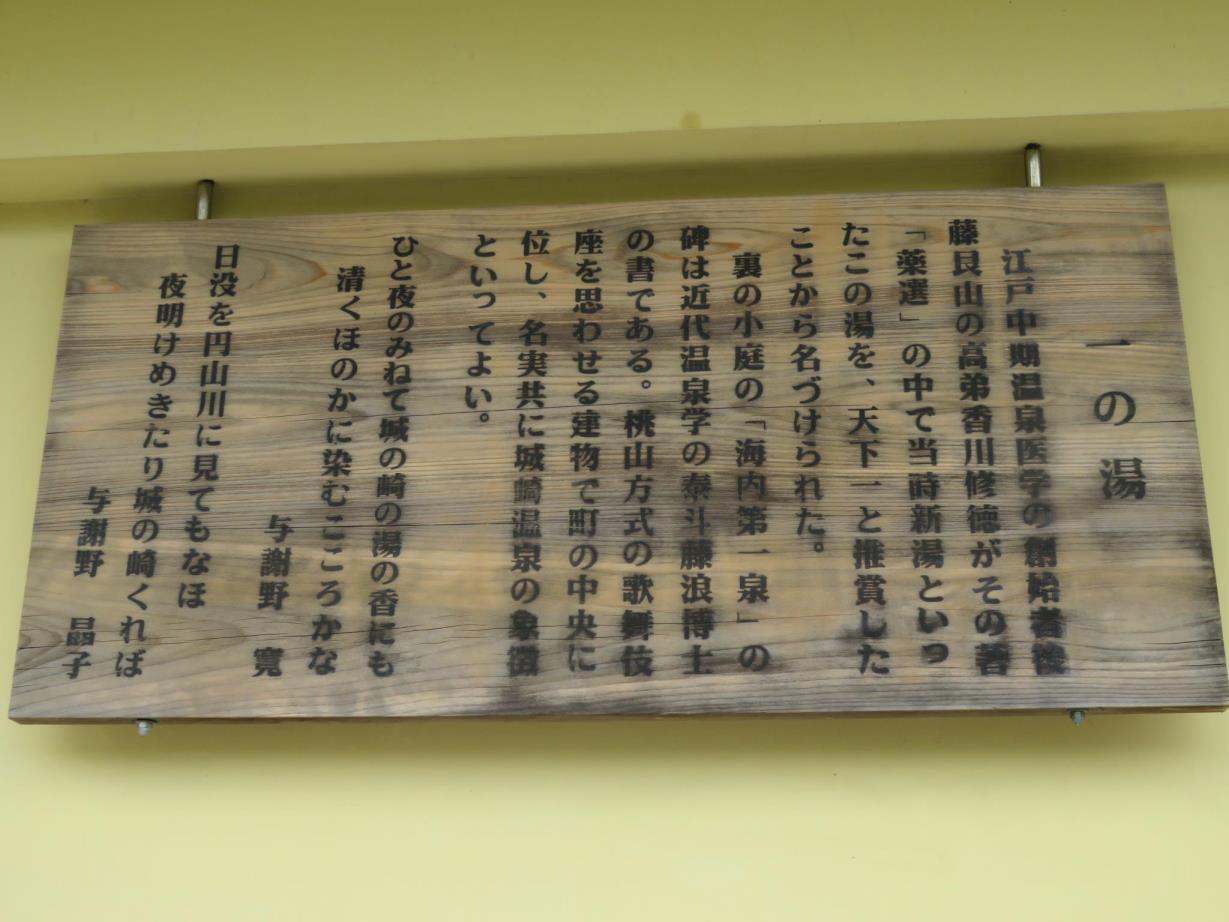 一の湯
江戸中期温泉医学の創始者後
藤艮山の高弟香川修徳がその著
「薬選」の中で当時新湯といっ
たこの湯を、天下一と推賞した
ことから名づけられた。
裏の小庭の「海内第一泉」の
碑は近代温泉学の泰斗藤浪博士
の書である。桃山方式の歌舞伎
座を思わせる建物で町の中央に
位し、名実共に城崎温泉の象徴
といってよい。
ひと夜のみねて城の崎の湯の香にも
清くほのかに染むこころかな
与謝野 寛
日没を円山川に見てもなほ
夜明けめきたり城の崎くれば
与謝野 晶子